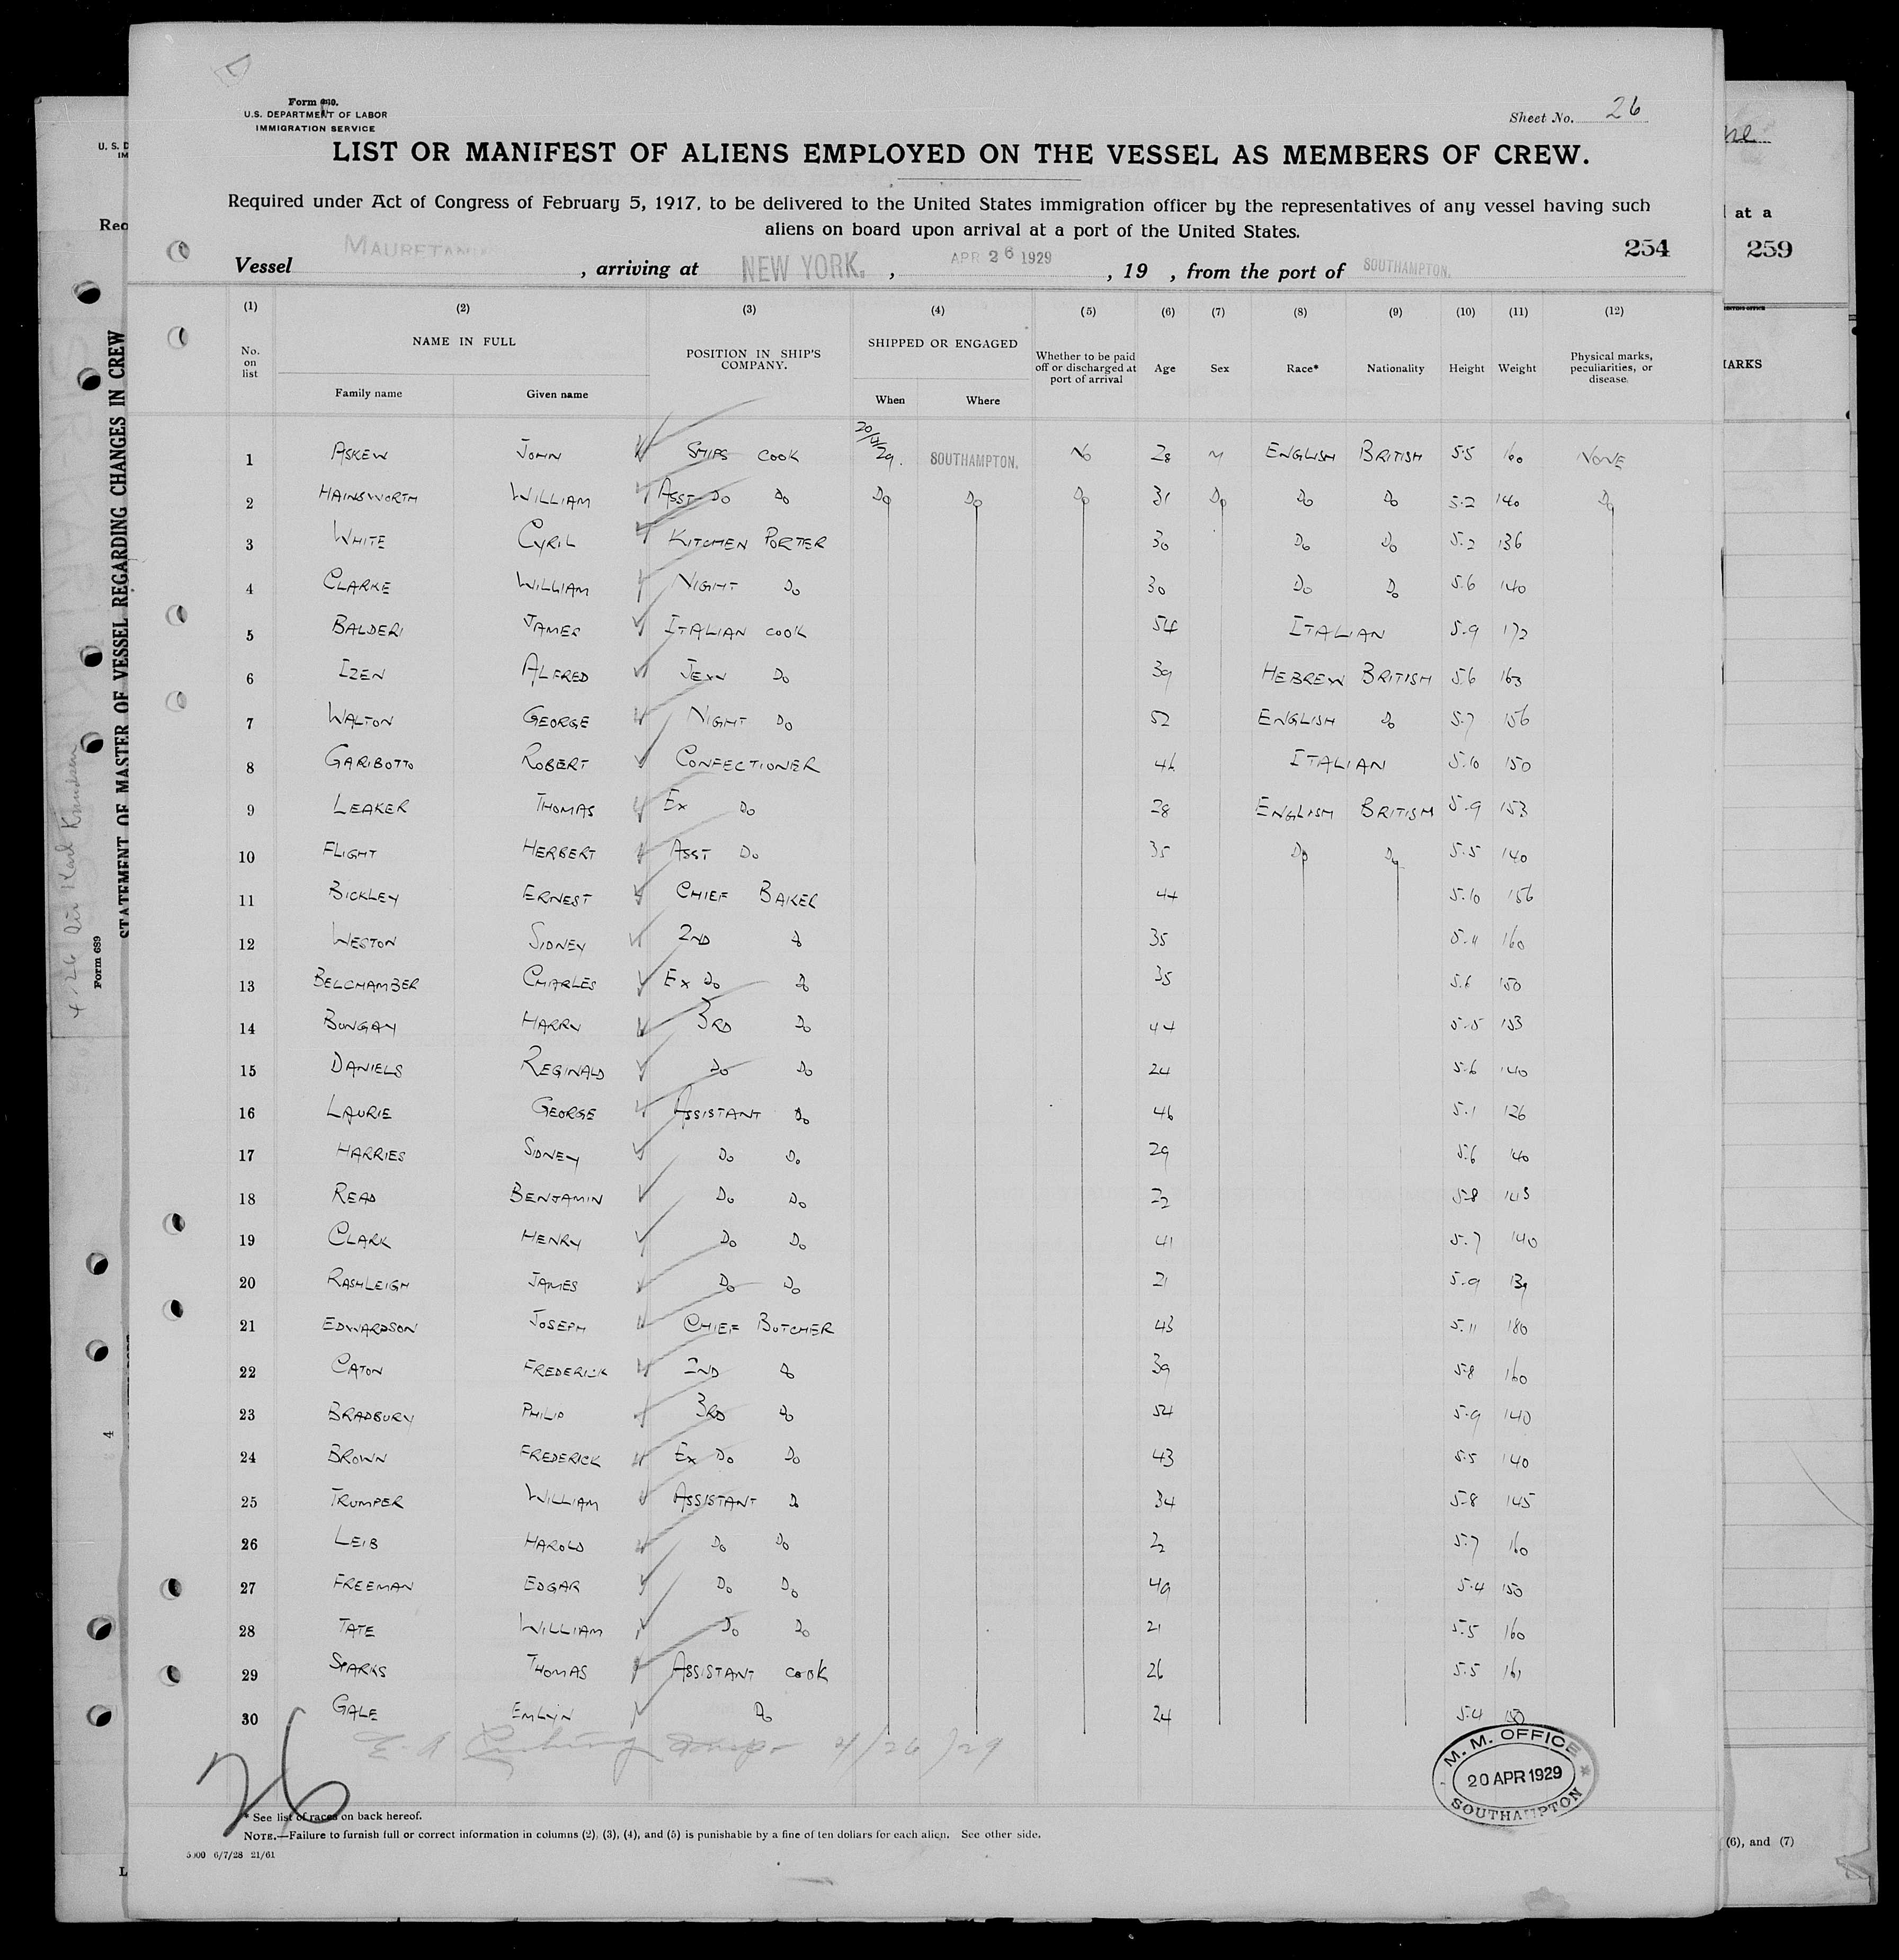 Form 680.
U.S. DEPARTMENT OF LABOR
IMMIGRATION SERVICE
Sheet No. 26
LIST OR MANIFEST OF ALIENS EMPLOYED ON THE VESSEL AS MEMBERS OF CREW.
Required under Act of Congress of February 5, 1917, to be delivered to the United States immigration officer by the representatives of any vessel having such
aliens on board upon arrival at a port of the United States.
254
259
Vessel MAURETANIA, arriving at NEW YORK., APR 26 1929, 19 , from the port of SOUTHAMPTON.
(1) (2) (3) (4) (5) (6) (7) (8) (9) (10) (11) (12)
No. on list NAME IN FULL POSITION IN SHIP'S COMPANY. SHIPPED OR ENGAGED Whether to be paid off or discharged at port of arrival Age Sex Race* Nationality Height Weight Physical marks, peculiarities, or disease.
Family name Given name When Where
1 ASKEW JOHN SHIPS COOK 20/4/29. SOUTHAMPTON. No 28 M ENGLISH BRITISH 5.5 160 NONE
2 HAINSWORTH WILLIAM ASST Do Do Do Do Do 31 Do Do Do 5.2 140 Do
3 WHITE CYRIL KITCHEN PORTER 30 Do Do 5.2 136
4 CLARKE WILLIAM NIGHT Do 30 Do Do 5.6 140
5 BALDERI JAMES ITALIAN COOK 54 ITALIAN 5.9 172
6 IZEN ALFRED JEW Do 39 HEBREW BRITISH 5.6 163
7 WALTON GEORGE NIGHT Do 52 ENGLISH Do 5.7 156
8 GARIBOTTO ROBERT CONFECTIONER 46 ITALIAN 5.10 150
9 LEAKER THOMAS EX Do 28 ENGLISH BRITISH 5.9 153
10 FLIGHT HERBERT ASST Do 35 Do Do 5.5 140
11 BICKLEY ERNEST CHIEF BAKER 44 5.10 156
12 WESTON SIDNEY 2ND Do 35 5.11 160
13 BELCHAMBER CHARLES EX Do Do 35 5.6 150
14 BUNGAY HARRY 3RD Do 44 5.5 153
15 DANIELS REGINALD Do Do 24 5.6 140
16 LAURIE GEORGE ASSISTANT Do 46 5.1 126
17 HARRIES SIDNEY Do Do 29 5.6 140
18 READ BENJAMIN Do Do 22 5.8 143
19 CLARK HENRY Do Do 41 5.7 140
20 RASHLEIGH JAMES Do Do 21 5.9 139
21 EDWARDSON JOSEPH CHIEF BUTCHER 43 5.11 180
22 CATON FREDERICK 2ND Do 39 5.8 160
23 BRADBURY PHILIP 3RD Do 54 5.9 140
24 BROWN FREDERICK EX Do Do 43 5.5 140
25 TRUMPER WILLIAM ASSISTANT Do 34 5.8 145
26 LEIB HAROLD Do Do 22 5.7 160
27 FREEMAN EDGAR Do Do 49 5.4 150
28 TATE WILLIAM Do Do 21 5.5 160
29 SPARKS THOMAS ASSISTANT COOK 26 5.5 161
30 GALE EMLYN Do 24 5.4 150
4/26/29
26
M. M. OFFICE
20 APR 1929
SOUTHAMPTON
* See list of races on back hereof.
NOTE.—Failure to furnish full or correct information in columns (2), (3), (4), and (5) is punishable by a fine of ten dollars for each alien. See other side.
5000 6/7/28 21/61
STATEMENT OF MASTER OF VESSEL REGARDING CHANGES IN CREW
Form 689
4/26 Karl Knudsen
U. S. D
IM
Req
at a
MARKS
(6), and (7)